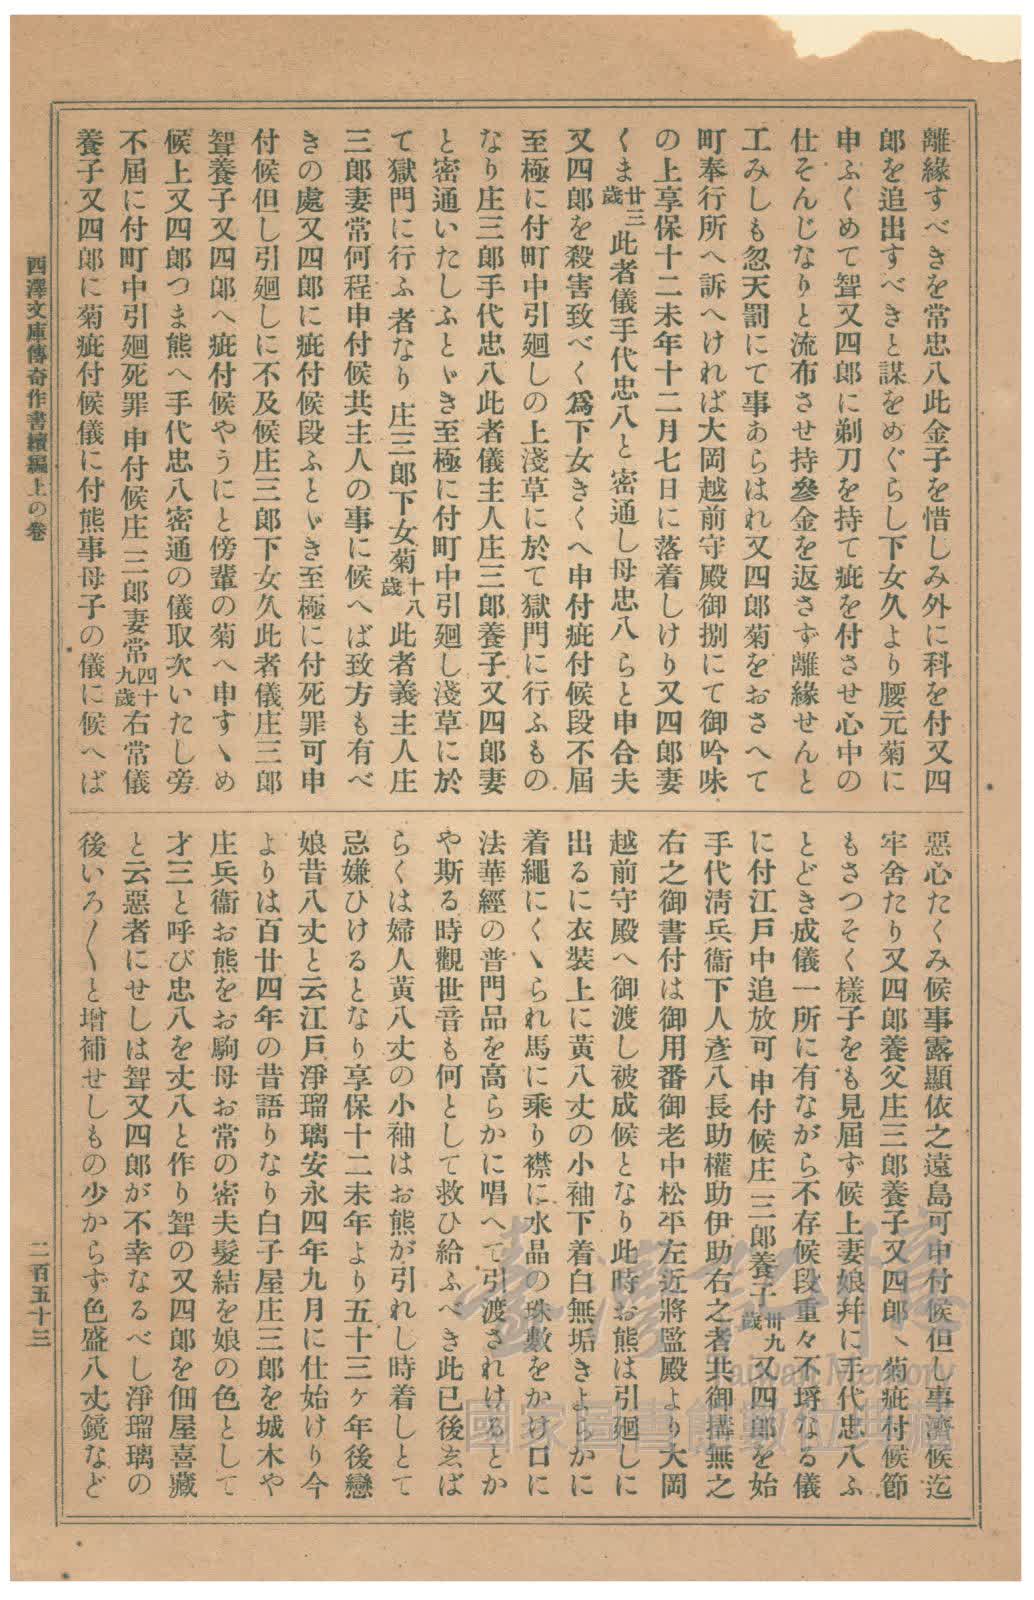 離緣すべきを常忠八此金子を惜しみ外に科を付又四
郎を追出すべきと謀をめぐらし下女久より腰元菊に
申ふくめて聟又四郎に剃刀を持て疵を付させ心中の
仕そんじなりと流布させ持參金を返さず離緣せんと
工みしも忽天罰にて事あらはれ又四郎菊をおさへて
町奉行所へ訴へければ大岡越前守殿御捌にて御吟味
の上享保十二未年十二月七日に落着しけり又四郎妻
くま廿三歲此者儀手代忠八と密通し母忠八らと申合夫
又四郎を殺害致べく爲下女きくへ申付疵付候段不屆
至極に付町中引廻しの上淺草に於て獄門に行ふもの
なり庄三郎手代忠八此者儀主人庄三郎養子又四郎妻
と密通いたしふとゞき至極に付町中引廻し淺草に於
て獄門に行ふ者なり庄三郎下女菊十八歲此者義主人庄
三郎妻常何程申付候共主人の事に候へば致方も有べ
きの處又四郎に疵付候段ふとゞき至極に付死罪可申
付候但し引廻しに不及候庄三郎下女久此者儀庄三郎
聟養子又四郎へ疵付候やうにと傍輩の菊へ申すゝめ
候上又四郎つま熊へ手代忠八密通の儀取次いたし旁
不屆に付町中引廻死罪申付候庄三郎妻常四十九歲右常儀
養子又四郎に菊疵付候儀に付熊事母子の儀に候へば
惡心たくみ候事露顯依之遠島可申付候但し事濟候迄
牢舍たり又四郎養父庄三郎養子又四郎へ菊疵付候節
もさつそく樣子をも見屆ず候上妻娘幷に手代忠八ふ
とどき成儀一所に有ながら不存候段重々不埒なる儀
に付江戸中追放可申付候庄三郎養子卅九歲又四郎を始
手代淸兵衞下人彥八長助權助伊助右之者共御搆無之
右之御書付は御用番御老中松平左近將監殿より大岡
越前守殿へ御渡し被成候となり此時お熊は引廻しに
出るに衣裝上に黃八丈の小袖下着白無垢きよらかに
着繩にくゝられ馬に乘り襟に水品の珠數をかけ口に
法華經の普門品を高らかに唱へて引渡されけるとか
や斯る時觀世音も何として救ひ給ふべき此已後ゑば
らくは婦人黃八丈の小袖はお熊が引れし時着しとて
忌嫌ひけるとなり享保十二未年より五十三ヶ年後戀
娘昔八丈と云江戸淨瑠璃安永四年九月に仕始けり今
よりは百廿四年の昔語りなり白子屋庄三郎を城木や
庄兵衞お熊をお駒母お常の密夫髮結を娘の色として
才三と呼び忠八を丈八と作り聟の又四郎を佃屋喜藏
と云惡者にせしは聟又四郎が不幸なるべし淨瑠璃の
後いろ〱と增補せしもの少からず色盛八丈鏡など
西澤文庫傳奇作書續編上の卷
二百五十三
臺灣記憶
Taiwan Memory
國家圖書館數位典藏